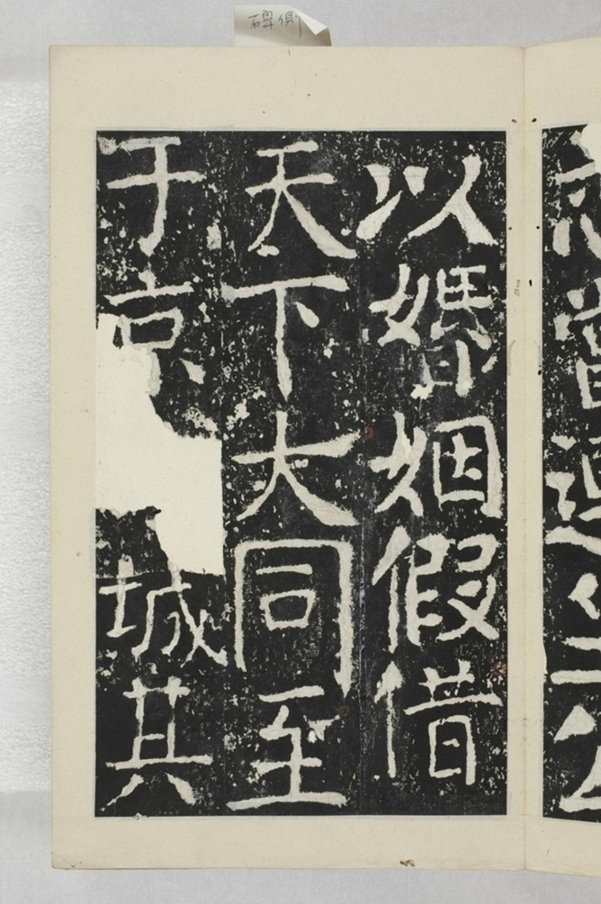 碑側
以婚姻假借
天下大同至
于京
城其